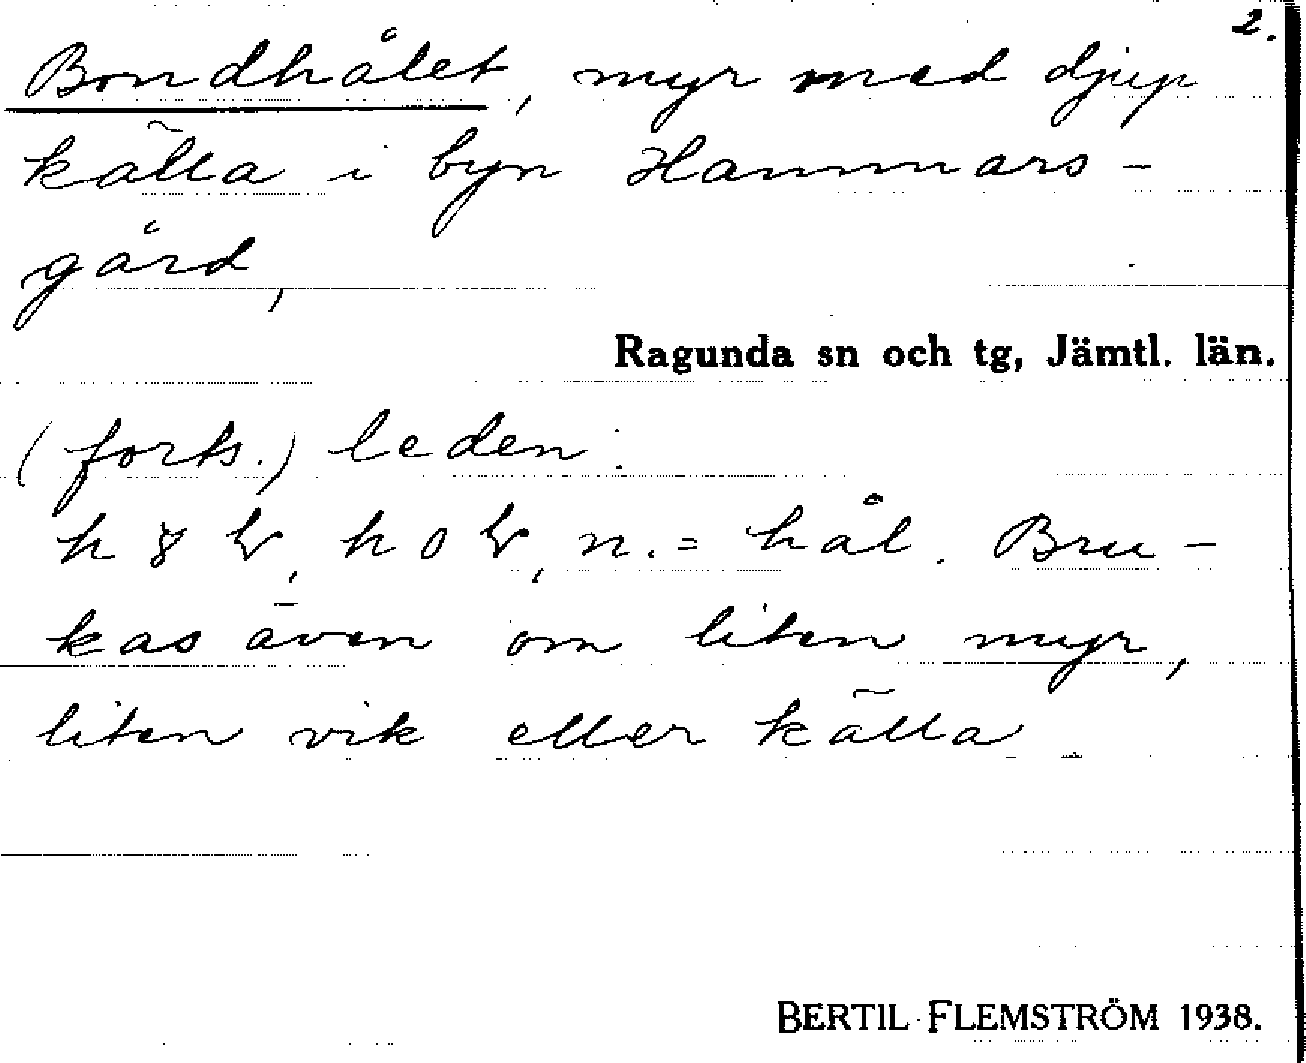 2.
Bondhålet, myr med djup
källa i byn Hammars-
gård,
Ragunda sn och tg, Jämtl. län.
(forts.) leden:
n. = hål. Bru-
kas även om liten myr,
liten vik eller källa
BERTIL FLEMSTRÖM 1938.